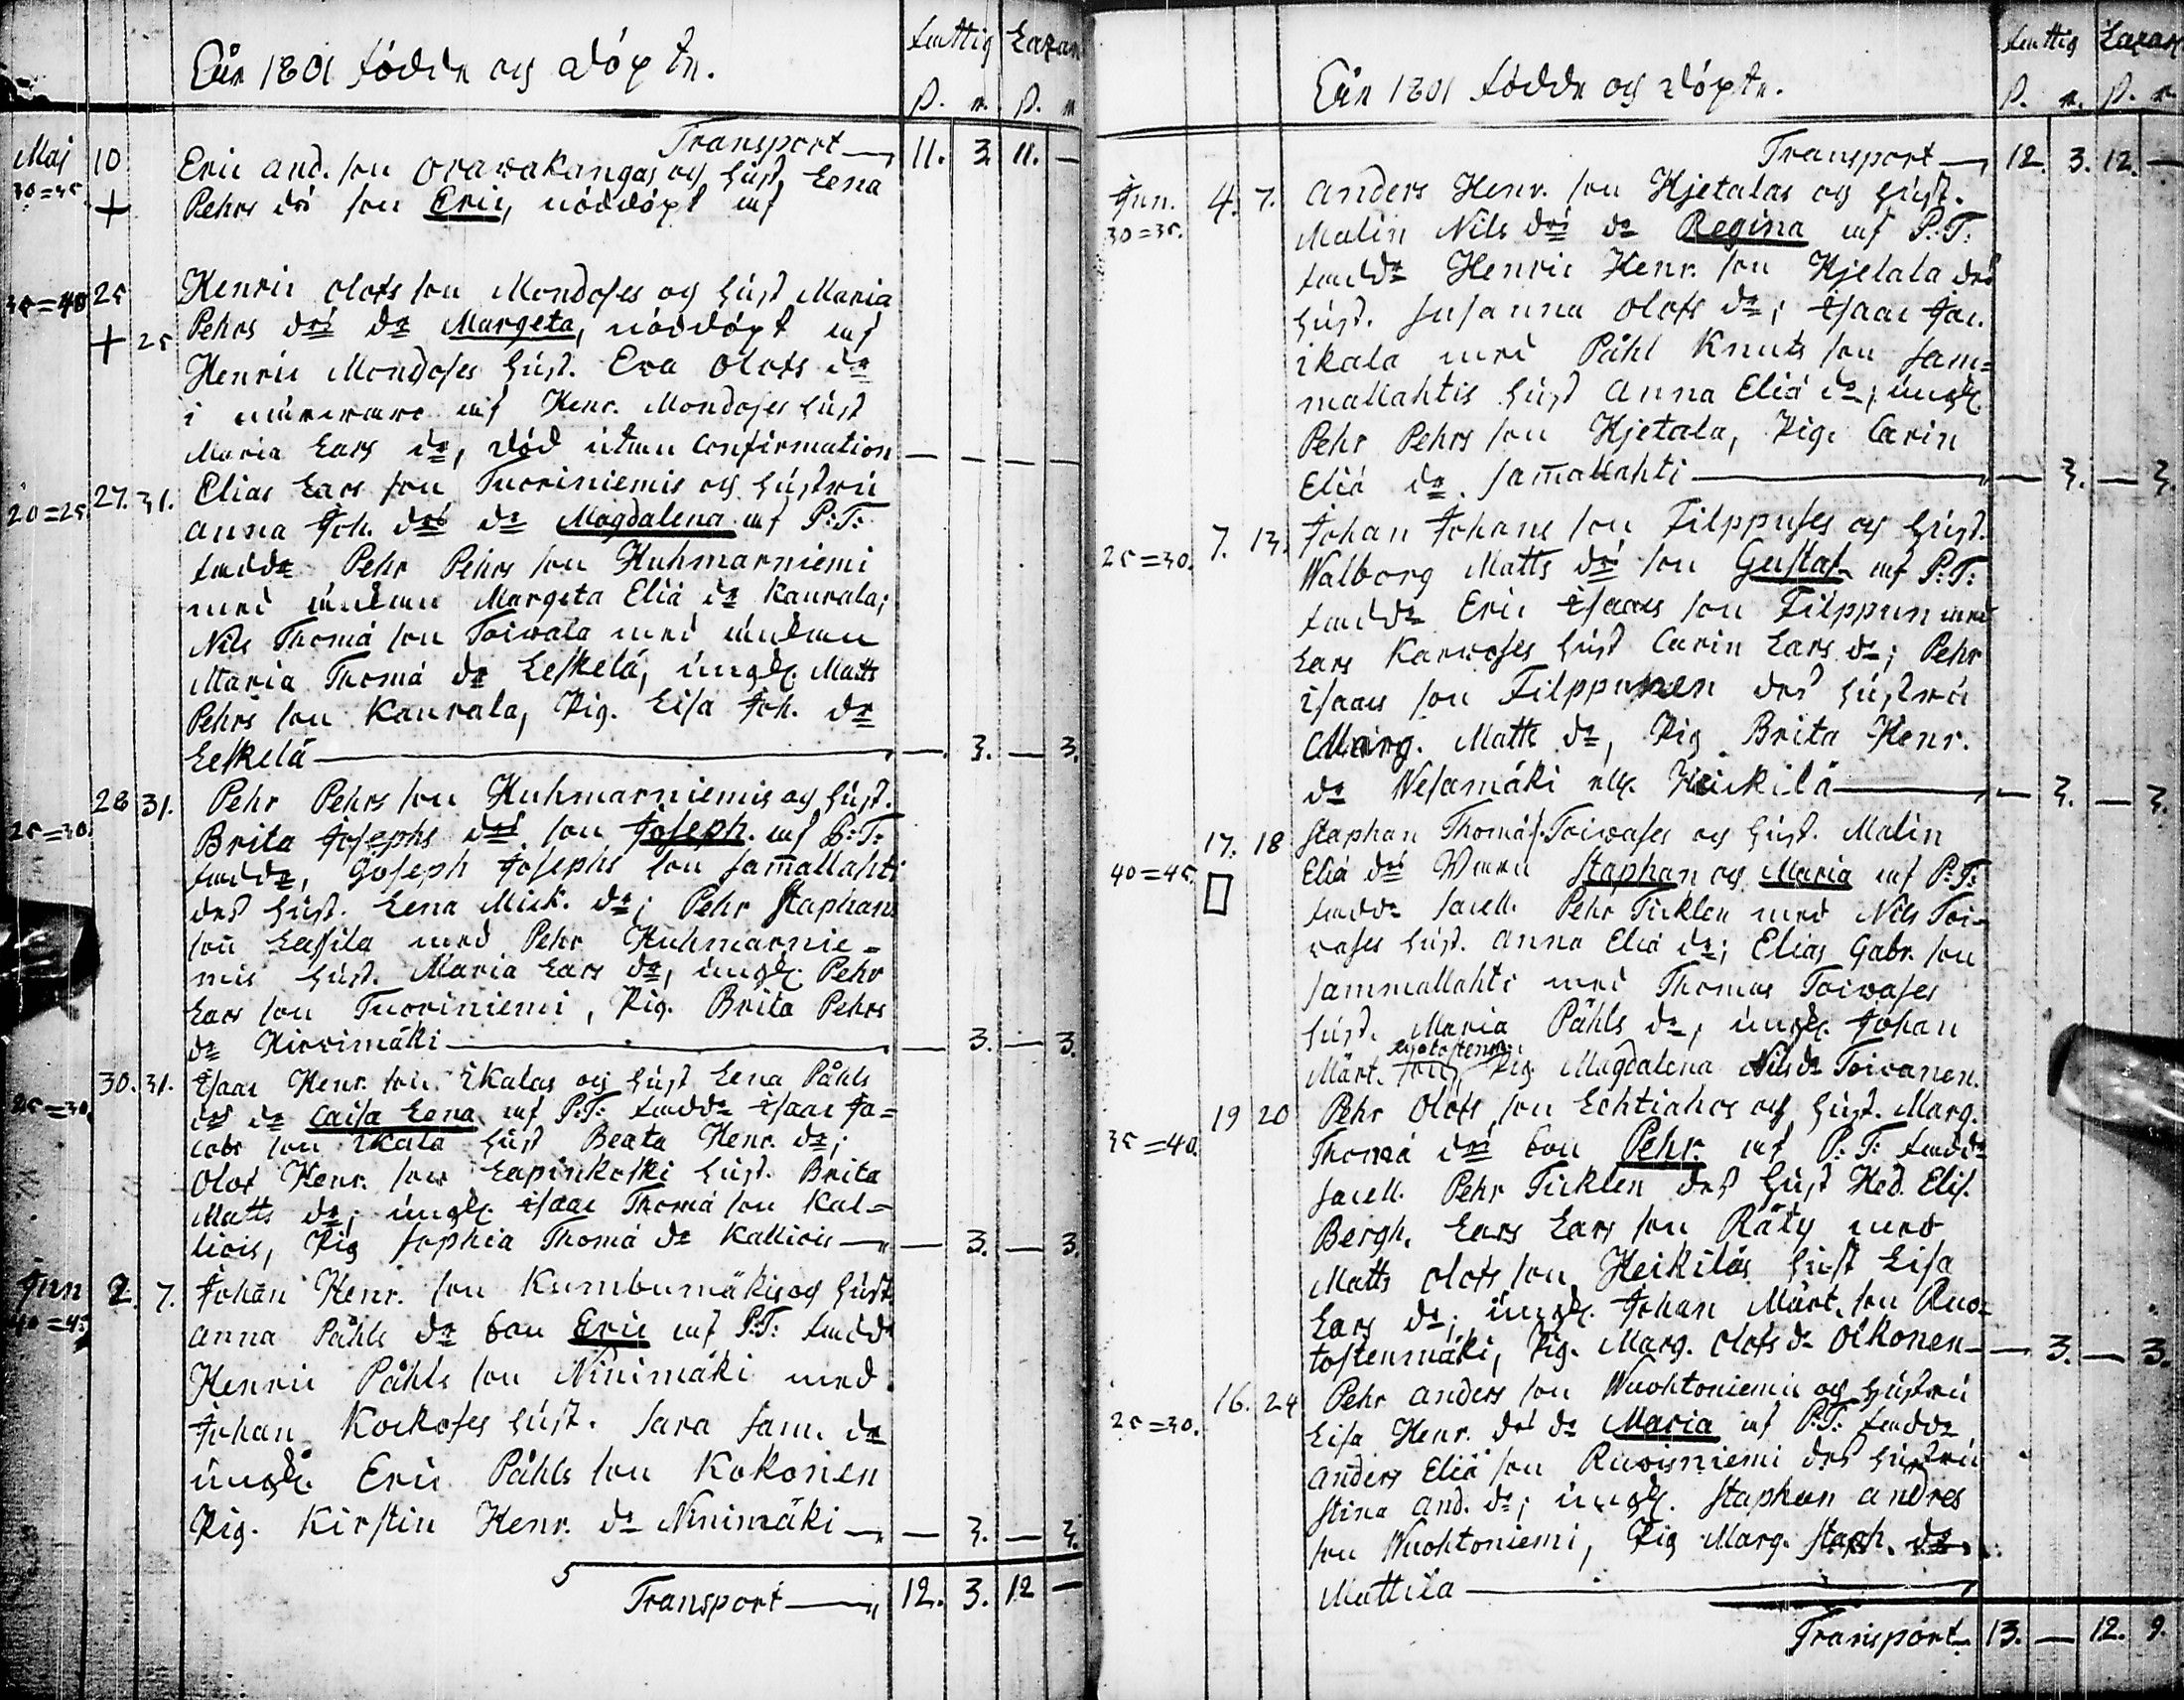 Åår 1801 födde och döpte.
fattig Lazar
ß. r. ß. r
Transport 11. 3 11. —
Maj 10 Eric And. son Orawakangas och hust. Lena
30=35. + Pehrs drs son Eric, nöddöpt af
35=40 25 Henric Olofs son Mondoses och hust Maria
+ 25 Pehrs drs dr Margeta, nöddöpt af
Henric Mondoses hust. Eva Olofs dr
i närwaro af Henr. Mondoses hust
Maria Lars dr, död utan Confirmation — — — —
20=25. 27. 31. Elias Lars son Tuoriniemis och hustru
Anna Joh. drs dr Magdalena af P:T:
faddr Pehr Pehrs son Huhmarniemi
med änkan Margeta Eliä dr Kaurala;
Nils Thomä son Toiwala med änkan
Maria Thomä dr Leskelä, ungk. Matts
Pehrs son Kaurala, Pig. Lisa Joh. dr
Leskelä — — 3. — 3.
28 31. Pehr Pehrs son Huhmarniemis och hust.
25=30. Brita Josephs drs son Joseph. af P:T:
faddr, Joseph Josephs son Sam̄allahti
des hust. Lena Mick. dr; Pehr Staphans
son Lassila med Pehr Huhmarnie=
mis hust. Maria Lars dr, ungk. Pehr
Lars son Tuoriniemi, Pig. Brita Pehrs
dr Hirvimäki — — 3. — 3.
30. 31. Isaac Henr. son Ikalas och hust Lena Påhls
25=30. drs dr Caisa Lena af P:T: faddr Isaac Ja=
cobs son Ikala hust Beata Henr. dr;
Olof Henr. son Lapinkoski hust. Brita
Matts dr; ungk. Isaac Thomä son Kal=
liois, Pig Sophia Thomä dr Kalliois — — 3. — 3.
Jun 2. 7. Johan Henr. son Kumbumäkis och hust.
40=45 Anna Påhls dr son Eric af P:T: faddr
Henric Påhls son Ninimäki med
Johan Kockoses hust. Sara Sam. dr
ungk. Eric Påhls son Kokonen
Pig. Kirstin Henr. dr Ninimäki — — 3. — 3.
Transport — 12. 3. 12 —
Åår 1801 födde och döpte.
fattig Lazar
ß. r. ß. r.
Transport — 12. 3. 12. —
Jun. 4. 7. Anders Henr. son Hjetalas och hust.
30=35. Malin Nils drs dr Regina af P:T:
faddr Henric Henr. son Hjetala des
hust. Susanna Olofs dr; Isaac Jac.
Ikala med Påhl Knuts son Sam=
mallahtis hust Anna Eliä dr; ungk.
Pehr Pehrs son Hjetala, Pig. Carin
Eliä dr. Sam̄allahti — — 3. — 3.
25=30. 7. 13. Johan Johans son Filppuses och hust.
Walborg Matts drs son Gustaf af P:T:
faddr Eric Isaacs son Filppun med
Lars Karwoses hust Carin Lars dr; Pehr
Isaacs son Filppunen des hustru
Marg. Matts dr, Pig Brita Henr.
dr Wesamäki ell. Heickilä — — 3. — 3.
17. 18 Staphan Thomä s. Toiwases och hust. Malin
40=45. Eliä drs Staphan och Maria af P:T:
faddr Sacell. Pehr Ticklen med Nils Toi=
wases hust. Anna Eliä dr; Elias Gabr. son
Sammallahti med Thomas Toiwases
hust. Maria Påhls dr; ungk. Johan
Märt. son, Pig. Magdalena Nils dr Toivanen.
19 20 Pehr Olofs son Lehtiahos och hust. Marg.
35=40. Thomä drs son Pehr. af P:T: faddr
Sacell. Pehr Ticklen des hust Hed. Elis.
Bergh. Lars Lars son Räty med
Matts Olofs son Heikiläs hust Lisa
Lars dr; ungk. Johan Märt. son Ruo=
tostenmäki, Pig. Marg. Olofs dr Oikonen — — 3. — 3.
16. 24 Pehr Anders son Wuohtoniemis och hustru
25=30. Lisa Henr. drs dr Maria af P:T: faddr
Anders Eliä son Ruoisniemi des hustru
Stina And. dr; ungk. Staphan Andres
son Wuohtoniemi, Pig Marg. Staph. dr
Mattila —
Transport 13. — 12. 9.